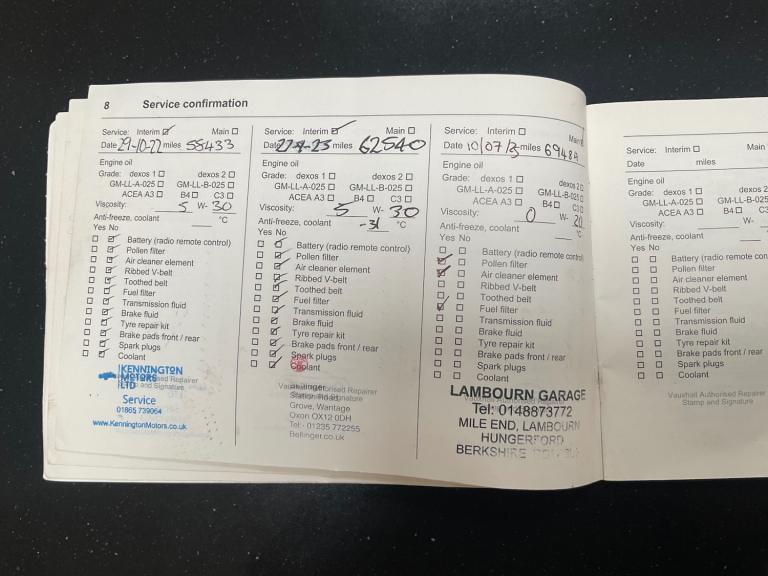 8 Service confirmation
Service: Interim Main
Date 29-10-22 miles 55433
Engine oil
Grade: dexos 1 dexos 2
GM-LL-A-025 GM-LL-B-025
ACEA A3 B4 C3
Viscosity: 5 W- 30
Anti-freeze, coolant °C
Yes No
Battery (radio remote control)
Pollen filter
Air cleaner element
Ribbed V-belt
Toothed belt
Fuel filter
Transmission fluid
Brake fluid
Tyre repair kit
Brake pads front / rear
Spark plugs
Coolant
KENNINGTON
MOTORS
LTD
Repairer
and Signature
Service
01865 739064
www.KenningtonMotors.co.uk
Service: Interim Main
Date miles 62540
Engine oil
Grade: dexos 1 dexos 2
GM-LL-A-025 GM-LL-B-025
ACEA A3 B4 C3
Viscosity: 5 W- 30
Anti-freeze, coolant -31 °C
Yes No
Battery (radio remote control)
Pollen filter
Air cleaner element
Ribbed V-belt
Toothed belt
Fuel filter
Transmission fluid
Brake fluid
Tyre repair kit
Brake pads front / rear
Spark plugs
Coolant
Repairer
Signature
Grove, Wantage
Oxon OX12 0DH
Tel:- 01235 772255
Bellinger.co.uk
Service: Interim Main
Date 10/07/ miles
Engine oil
Grade: dexos 1 dexos 2
GM-LL-A-025 GM-LL-B-025
ACEA A3 B4 C3
Viscosity: 0 W- 20
Anti-freeze, coolant °C
Yes No
Battery (radio remote control)
Pollen filter
Air cleaner element
Ribbed V-belt
Toothed belt
Fuel filter
Transmission fluid
Brake fluid
Tyre repair kit
Brake pads front / rear
Spark plugs
Coolant
LAMBOURN GARAGE
Tel: 0148873772
MILE END, LAMBOURN
HUNGERFORD
BERKSHIRE
Service: Interim Main
Date miles
Engine oil
Grade: dexos 1 dexos 2
GM-LL-A-025
ACEA A3 B4 C3
Viscosity: W-
Anti-freeze, coolant
Yes No
Battery (radio remote
Pollen filter
Air cleaner element
Ribbed V-belt
Toothed belt
Fuel filter
Transmission fluid
Brake fluid
Tyre repair kit
Brake pads front / rear
Spark plugs
Coolant
Vauxhall Authorised Repairer
Stamp and Signature